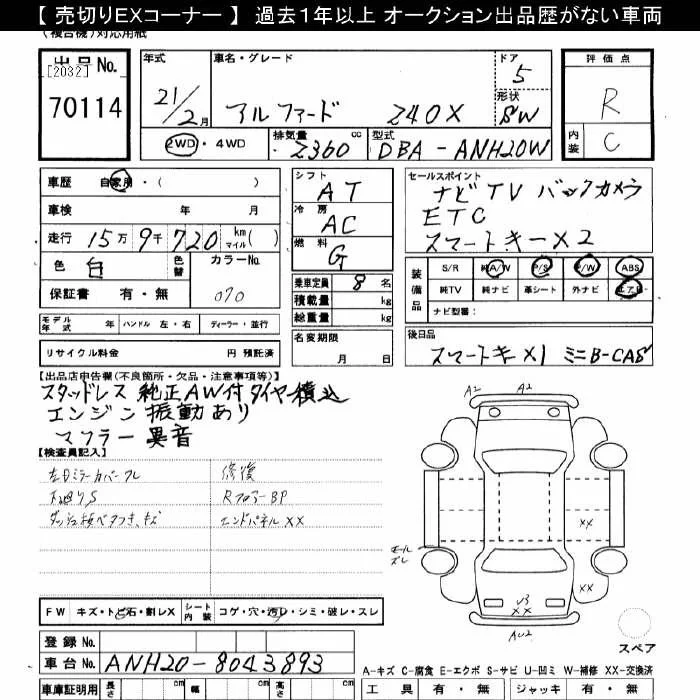 【 売切りEXコーナー 】 過去1年以上 オークション出品歴がない車両
(複合機)対応用紙
出品No. [2032] 70114
年式 21/2月
車名・グレード アルファード 240X
ドア 5
形状 SW
2WD・4WD
排気量 2360 cc
型式 DBA-ANH20W
評価点 R
内装 C
車歴 自家用・( )
車検 年 月
走行 15万9千720 km マイル( )
色 白 色替 カラーNo. 070
保証書 有・無
シフト AT
冷房 AC
燃料 G
乗車定員 8名
積載量 kg
総重量 kg
セールスポイント
ナビ TV バックカメラ
ETC
スマートキー×2
装備品 S/R 純A/W P/S P/W ABS
純TV 純ナビ 革シート 外ナビ エアB-
ナビ型番:
モデル年式 年 ハンドル 左・右 ディーラー・並行
リサイクル料金 円 預託済
名変期限 月 日
後日品
スマートキー×1 ミニB-CAS
【出品店申告欄(不良箇所・欠品・注意事項等)】
スタッドレス 純正AW付タイヤ積込
エンジン振動あり
マフラー異音
【検査員記入】
左ドミラーカバーフレ 修復
下廻りS RフロアーBP
ダッシュ板ベタつき、キズ エンドパネルXX
A2 A2
XX
モールズレ
XX
U3
XX
AU2
スペア
FW キズ・トビ石・割レX シート内装 コゲ・穴・汚レ・シミ・破レ・スレ
登録No.
車台No. ANH20-8043893
A-キズ C-腐食 E-エクボ S-サビ U-凹ミ W-補修 XX-交換済
車庫証明用 長さ cm 幅 cm 高さ cm
工具 有・無 ジャッキ 有・無